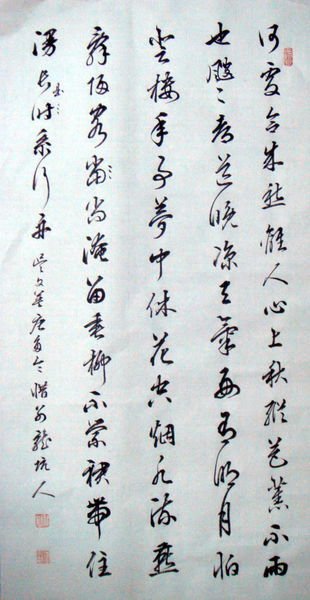 何處合成愁離人心上秋縱芭蕉不雨
也颼々都道晚凉天氣好有明月怕
登樓年事夢中休花空烟水流燕
辭歸客尚淹留垂柳不縈裙帶住
漫長是系行舟 吴文英唐多令惜别 龍坑人